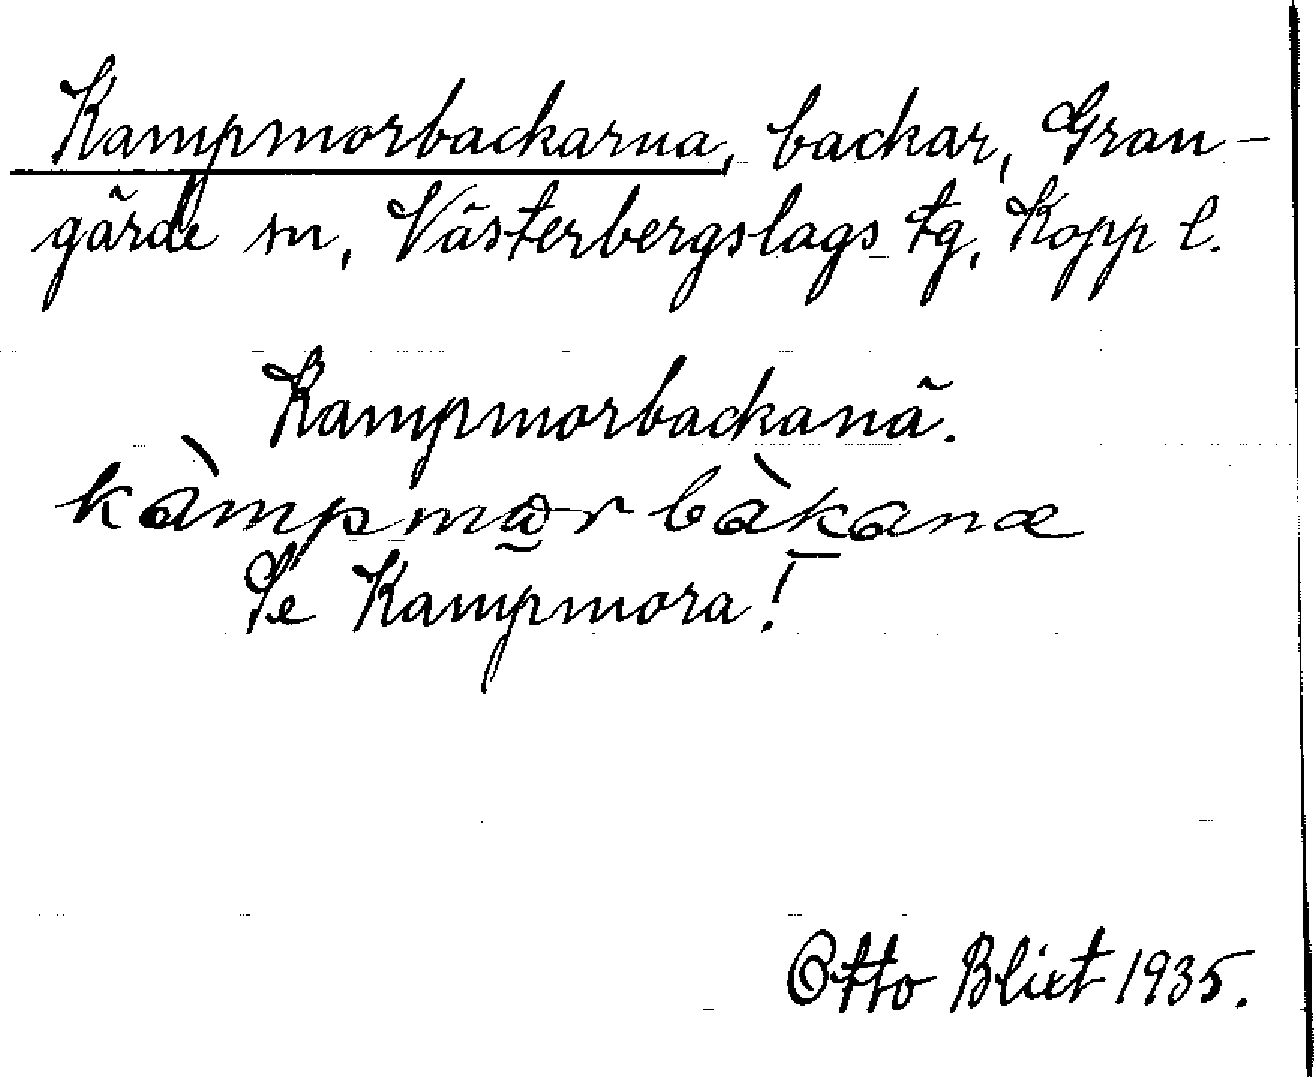 Kampmorbackarna, backar, Gran-
gärde sn, Västerbergslags tg, Kopp l.
Kampmorbackanä.
kàmpmωr bàkanæ
Se Kampmora!
Otto Blixt 1935.